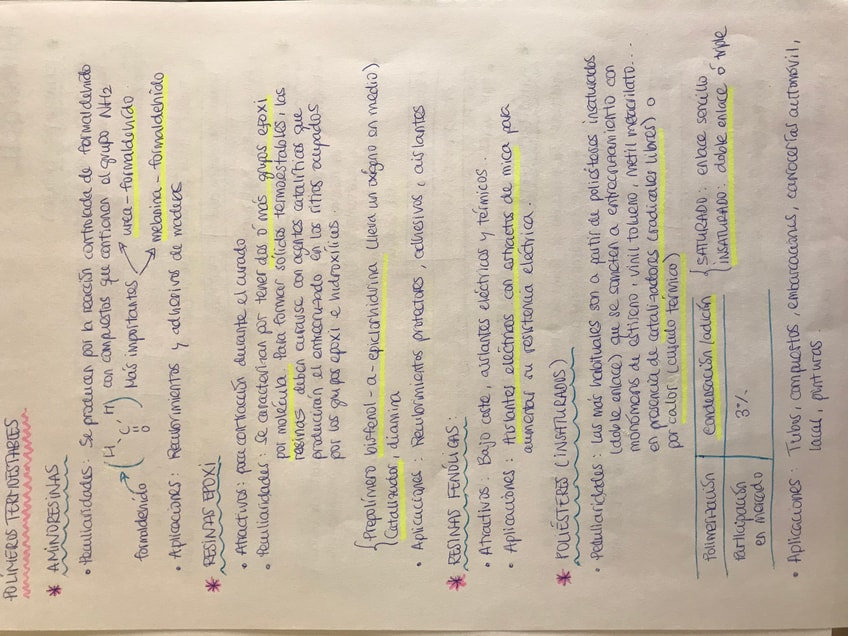 POLÍMEROS TERMOESTABLES
* AMINORESINAS
• Peculiaridades: Se producen por la reacción controlada de formaldehido
con compuestos que contienen el grupo NH2
(H C H O) Más importantes urea-formaldehido
formaldehido melamina-formaldehido
• Aplicaciones: Recubrimientos y adhesivos de madera
* RESINAS EPOXI
• Atractivos: poca contracción durante el curado
• Peculiaridades: se caracterizan por tener dos ó más grupos epoxi
por molécula. Para formar sólidos termoestables, las
resinas deben curarse con agentes catalíticos que
producirán el entrecruzado en los sitios ocupados
por los grupos epoxi e hidroxílicos.
{Prepolímero bisfenol-a-epiclorhidrina (lleva un oxígeno en medio)
Catalizador, diamina
• Aplicaciones: Recubrimientos protectores, adhesivos, aislantes
* RESINAS FENÓLICAS:
• Atractivos: Bajo coste, aislantes eléctricos y térmicos.
• Aplicaciones: Aislantes eléctricos con estractos de mica para
aumentar su resistencia eléctrica.
* POLIÉSTERES (INSATURADOS)
• Peculiaridades: Los más habituales son a partir de poliésteres insaturados
(doble enlace) que se someten a entrecruzamiento con
monómeros de estireno, vinil tolueno, metil metacrilato...
en presencia de catalizadores (radicales libres) o
por calor (curado térmico)
Polimerización Condensación/adición {SATURADO: enlace sencillo
INSATURADO: doble enlace ó triple
Participación en mercado 3%
• Aplicaciones: Tubos, compuestos, embarcaciones, carrocerías automóvil,
lacas, pinturas.